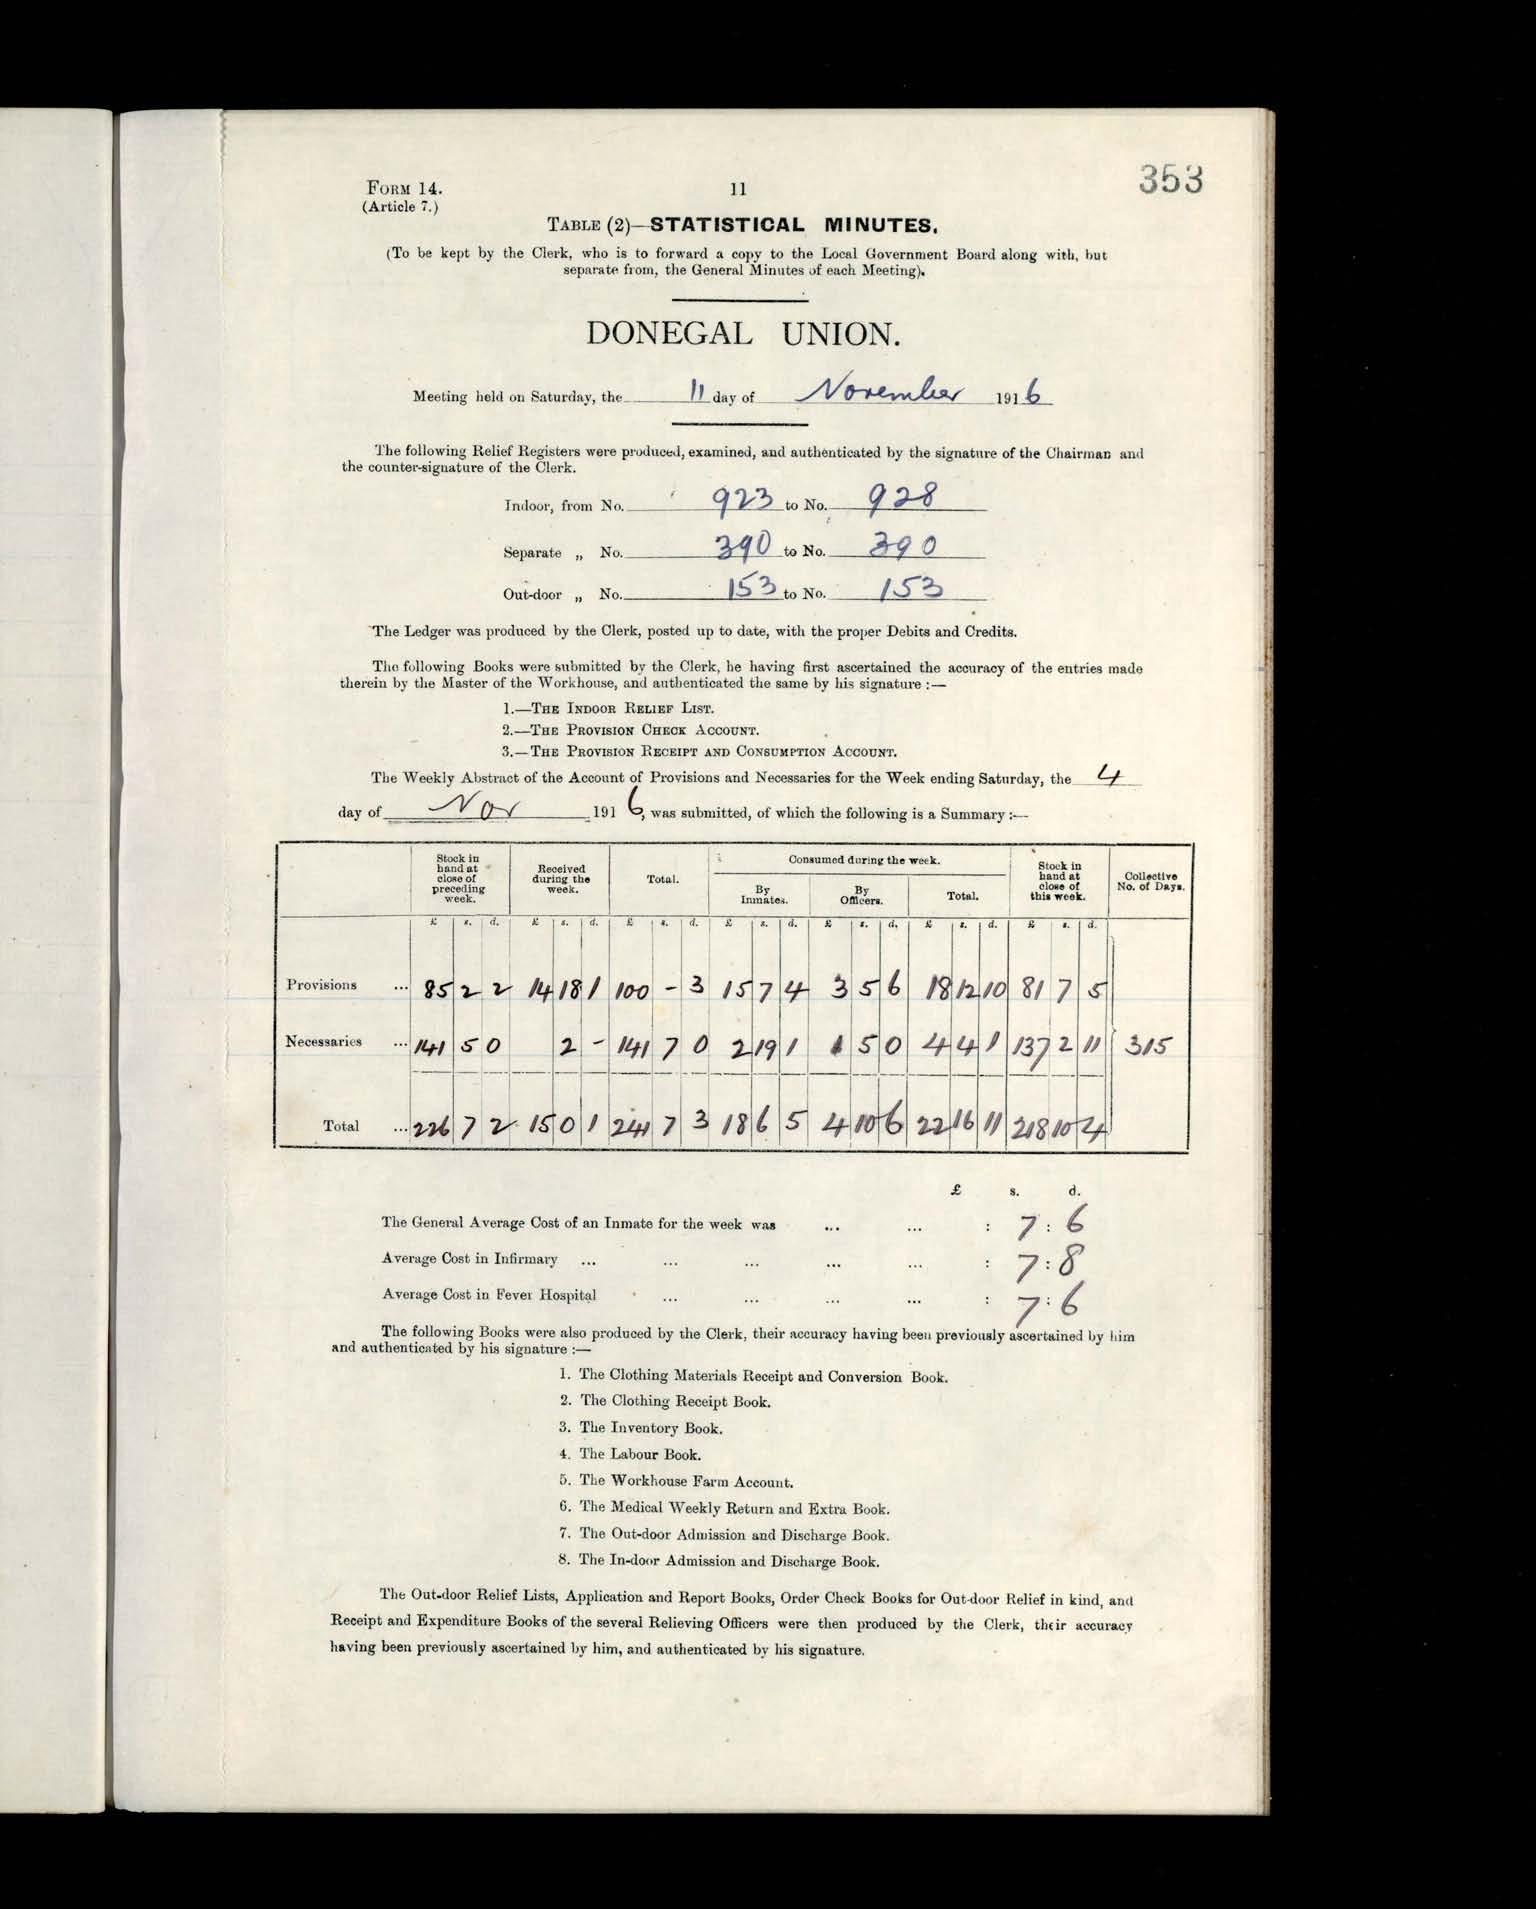 353
FORM 14.
11
(Article 7.)
TABLE (2)—STATISTICAL MINUTES.
(To be kept by the Clerk, who is to forward a copy to the Local Government Board along with, but
separate from, the General Minutes of each Meeting).
DONEGAL UNION.
Meeting held on Saturday, the 11 day of November 1916
The following Relief Registers were produced, examined, and authenticated by the signature of the Chairman and
the counter-signature of the Clerk.
Indoor, from No. 923 to No. 928
Separate „ No. 390 to No. 390
Out-door „ No. 153 to No. 153
The Ledger was produced by the Clerk, posted up to date, with the proper Debits and Credits.
The following Books were submitted by the Clerk, he having first ascertained the accuracy of the entries made
therein by the Master of the Workhouse, and authenticated the same by his signature :—
1.—THE INDOOR RELIEF LIST.
2.—THE PROVISION CHECK ACCOUNT.
3.—THE PROVISION RECEIPT AND CONSUMPTION ACCOUNT.
The Weekly Abstract of the Account of Provisions and Necessaries for the Week ending Saturday, the 4
day of Nov 1916, was submitted, of which the following is a Summary :—
Stock in hand at close of preceding week. Received during the week. Total. Consumed during the week. Stock in hand at close of this week. Collective No. of Days.
By Inmates. By Officers. Total.
£ s. d. £ s. d. £ s. d. £ s. d. £ s. d. £ s. d. £ s. d.
Provisions ... 85 2 2 14 18 1 100 - 3 15 7 4 3 5 6 18 12 10 81 7 5
Necessaries ... 141 5 0 2 - 141 7 0 2 19 1 1 5 0 4 4 1 137 2 11 315
Total ... 226 7 2 15 0 1 241 7 3 18 6 5 4 10 6 22 16 11 218 10 4
£ s. d.
The General Average Cost of an Inmate for the week was ... ... : 7 : 6
Average Cost in Infirmary ... ... ... ... ... : 7 : 8
Average Cost in Fever Hospital ... ... ... ... : 7 : 6
The following Books were also produced by the Clerk, their accuracy having been previously ascertained by him
and authenticated by his signature :—
1. The Clothing Materials Receipt and Conversion Book.
2. The Clothing Receipt Book.
3. The Inventory Book.
4. The Labour Book.
5. The Workhouse Farm Account.
6. The Medical Weekly Return and Extra Book.
7. The Out-door Admission and Discharge Book.
8. The In-door Admission and Discharge Book.
The Out-door Relief Lists, Application and Report Books, Order Check Books for Out-door Relief in kind, and
Receipt and Expenditure Books of the several Relieving Officers were then produced by the Clerk, their accuracy
having been previously ascertained by him, and authenticated by his signature.